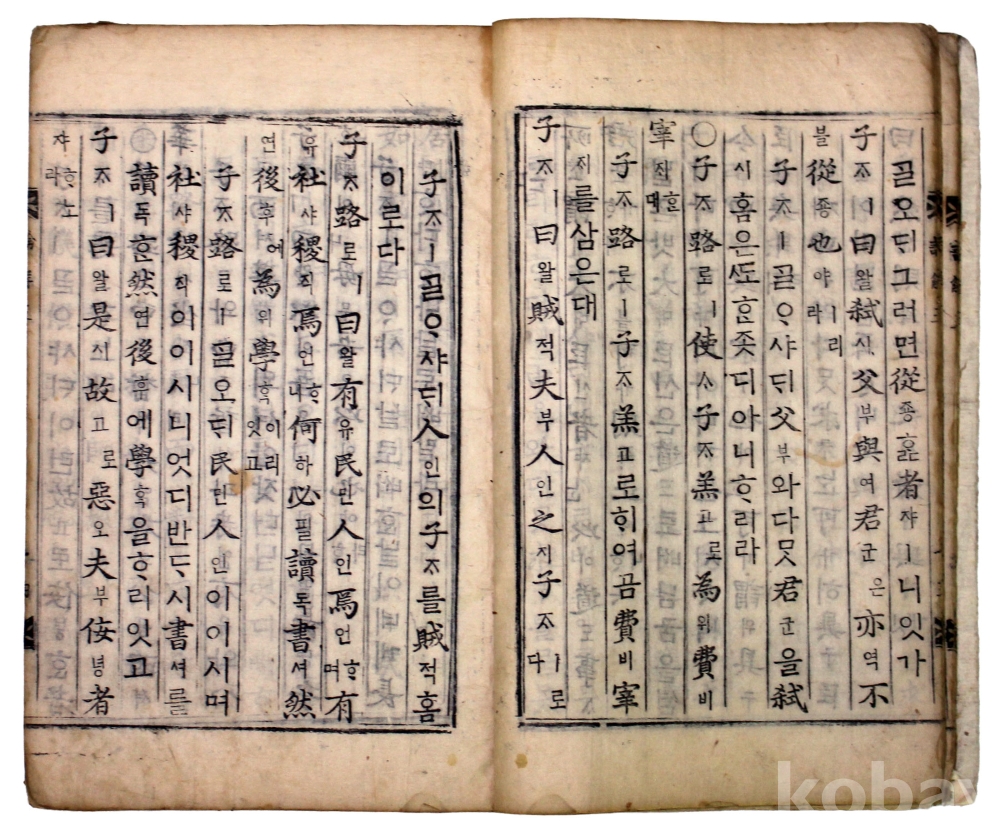 ᄀᆞᆯ오ᄃᆡ그러면從죵ᄒᆞᆯ者쟈ㅣ니잇가
子ᄌᆞㅣ曰왈弑시父부與여君군은亦역不
블從죵也야ㅣ리라
子ᄌᆞㅣᄀᆞᆯᄋᆞ샤ᄃᆡ父부와다ᄆᆺ君군을弑
시홈은ᄯᅩᄒᆞᆫ좃디아니ᄒᆞ리라
○子ᄌᆞ路로ㅣ使ᄉᆞ子ᄌᆞ羔고로為위費비
宰ᄌᆡᄒᆞᆫ대
子ᄌᆞ路로ㅣ子ᄌᆞ羔고로ᄒᆡ여곰費비宰
ᄌᆡ를삼은대
子ᄌᆞㅣ曰왈賊적夫부人인之지子ᄌᆞㅣ로다
子ᄌᆞㅣᄀᆞᆯᄋᆞ샤ᄃᆡ人인의子ᄌᆞ를賊적홈
이로다
子ᄌᆞ路로ㅣ曰왈有유民민人인焉언ᄒᆞ며有
유社샤稷직焉언ᄒᆞ니何하必필讀독書셔然
연後후에為위學ᄒᆞᆨ이리잇고
子ᄌᆞ路로ㅣᄀᆞᆯ오ᄃᆡ民민人인이이시며
社샤稷직이이시니엇디반ᄃᆞ시書셔를
讀독ᄒᆞᆫ然연後후에學ᄒᆞᆨ을ᄒᆞ리잇고
子ᄌᆞㅣ曰왈是시故고로惡오夫부佞녕者
쟈ᄒᆞ노라
kobay